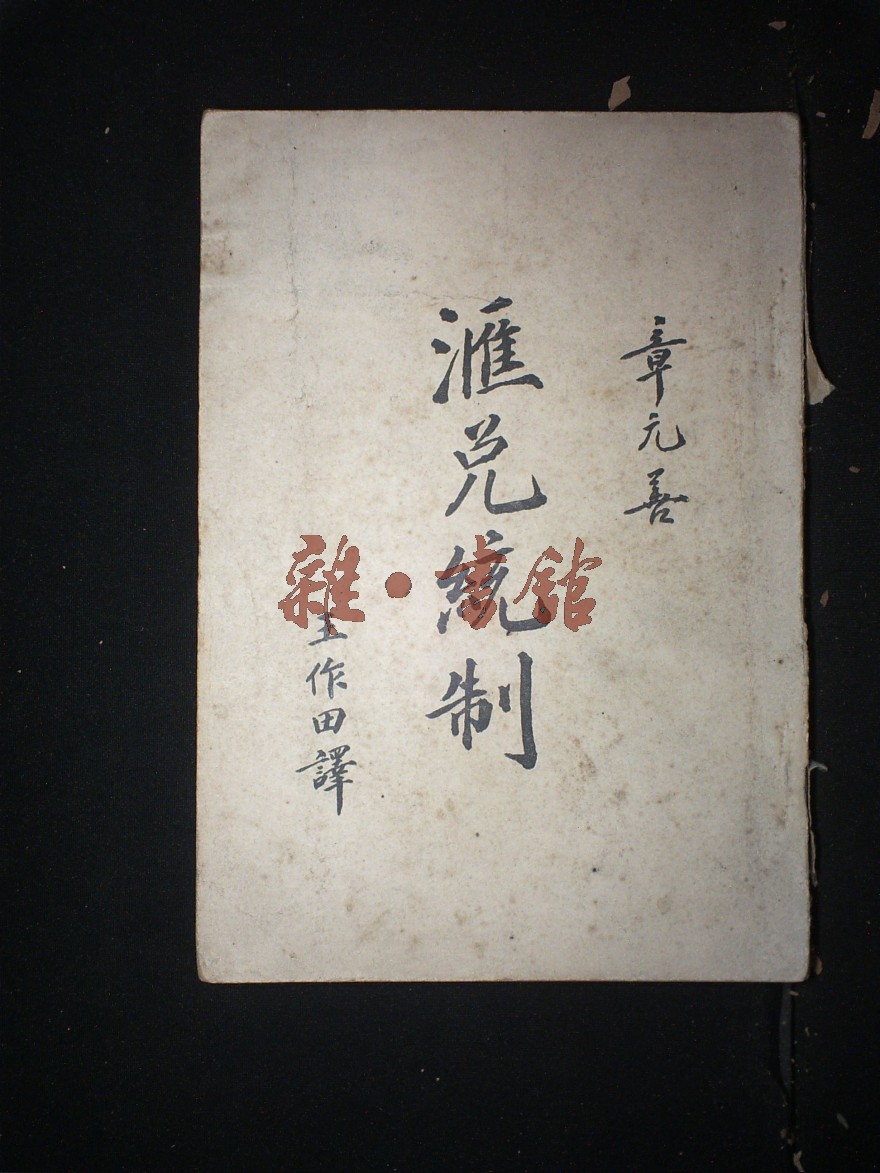 章元善
滙兌統制
王作田譯
雜·書館